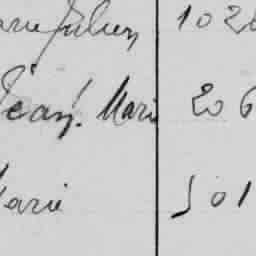 arie Julien 102
Jean. Marie 206
Marie 501